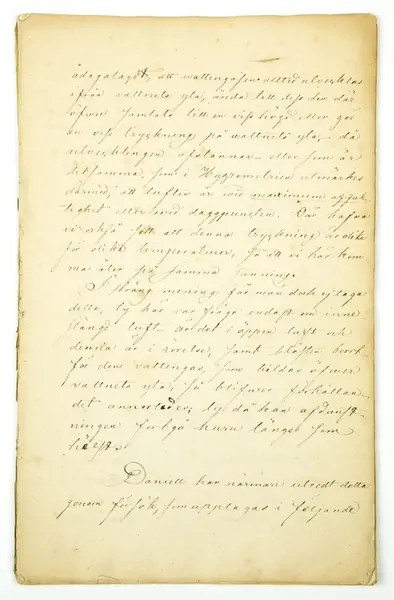 ådagalagdt, att wattengasen alltid utvecklas
ifrån vattnets yta, ända till dess den där
öfver samlats till en viss höjd eller gör
en viss tryckning på wattnets yta, då
utvecklingen afstannar – eller som är
detsamma, som i Hygrometrien utmärkes
därmed, att luften är wid maximum af fuk-
tighet eller wid daggpunkten. Där hafva
vi också sett att denna tryckning är olika
för olika temperaturer, så att vi här kom
ma åter på samma sanning.
I sträng mening får man dock ej taga
detta, ty här var fråga endast om inne-
stängd luft. är det i öppen luft och
denna är i rörelse, samt blåser bort
för dem vattengas, som bildas öfver
vattnets yta, så blifver förhållan-
det annorledes, ty då kan afdunst-
ningen fortgå huru länge som
hälst.
Daniell har närmare utredt detta
genom försök, som upptagas i följande